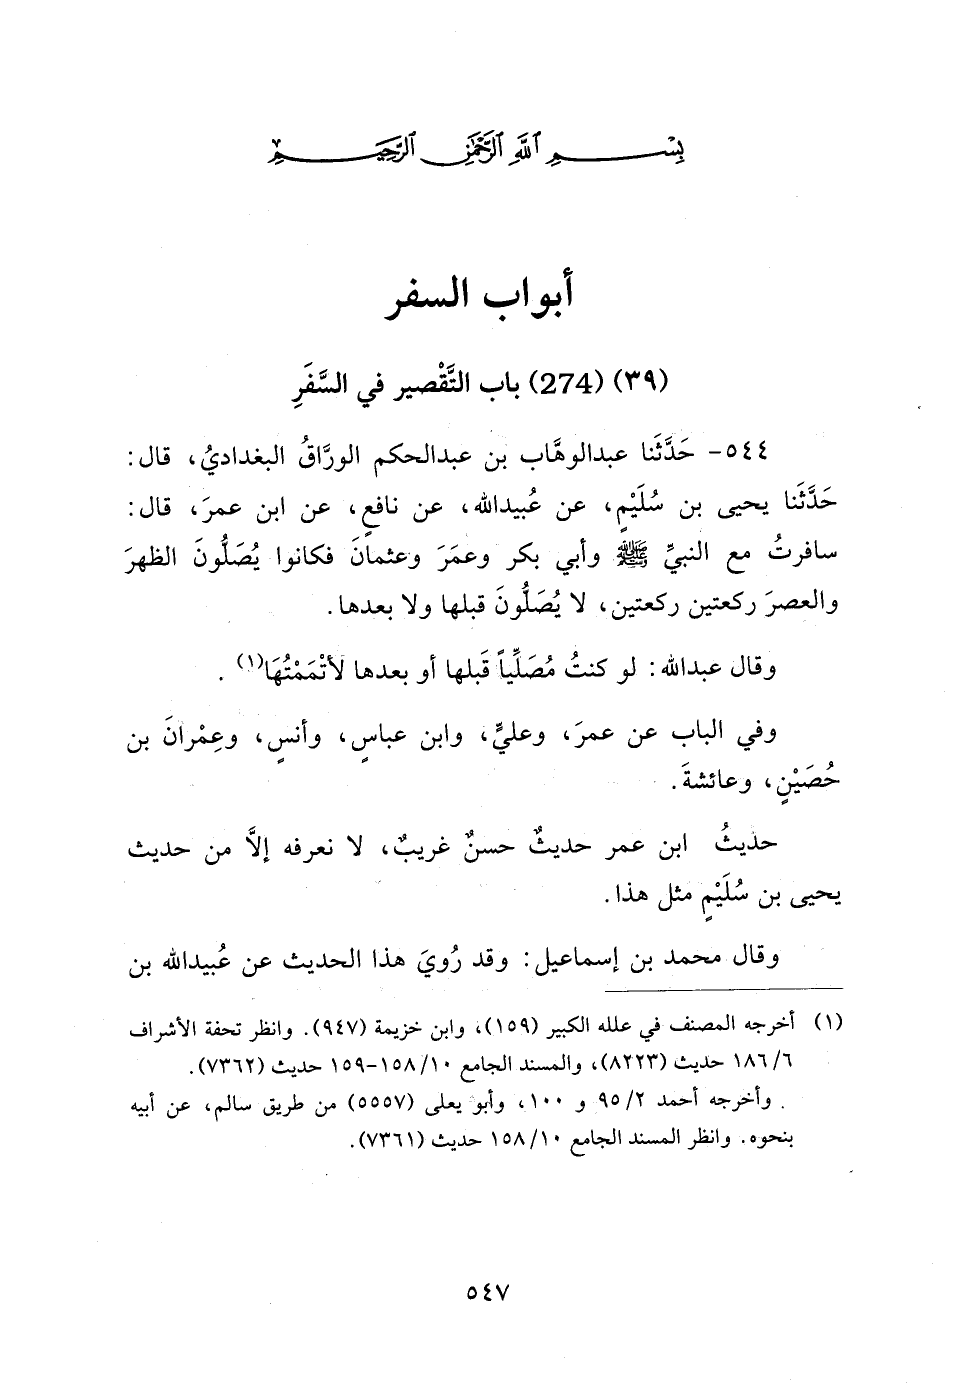 بِسْمِ اللَّهِ الرَّحْمَٰنِ الرَّحِيمِ
أبواب السفر
(٣٩) (274) باب التَّقْصير في السَّفَرِ
٥٤٤- حَدَّثَنا عبدالوهَّاب بن عبدالحكم الورَّاقُ البغداديُ، قال:
حَدَّثَنا يحيى بن سُلَيْمٍ، عن عُبيدالله، عن نافعٍ، عن ابن عمرَ، قال:
سافرتُ مع النبيِّ ﷺ وأبي بكر وعمَرَ وعثمانَ فكانوا يُصَلُّونَ الظهرَ
والعصرَ ركعتين ركعتين، لا يُصَلُّونَ قبلها ولا بعدها.
وقال عبدالله: لو كنتُ مُصَلِّياً قَبلها أو بعدها لأتْمَمْتُهَا(١).
وفي الباب عن عمرَ، وعليٍّ، وابن عباسٍ، وأنسٍ، وعِمْرانَ بن
حُصَيْنٍ، وعائشةَ.
حذيثُ ابن عمر حديثٌ حسنٌ غريبٌ، لا نعرفه إلاَّ من حديث
يحيى بن سُلَيْمٍ مثل هذا.
وقال محمد بن إسماعيل: وقد رُويَ هذا الحديث عن عُبيدالله بن
(١) أخرجه المصنف في علله الكبير (١٥٩)، وابن خزيمة (٩٤٧). وانظر تحفة الأشراف
٦/ ١٨٦ حديث (٨٢٢٣)، والمسند الجامع ١٠/ ١٥٨-١٥٩ حديث (٧٣٦٢).
وأخرجه أحمد ٢/ ٩٥ و ١٠٠، وأبو يعلى (٥٥٥٧) من طريق سالم، عن أبيه
بنحوه. وانظر المسند الجامع ١٠/ ١٥٨ حديث (٧٣٦١).
٥٤٧